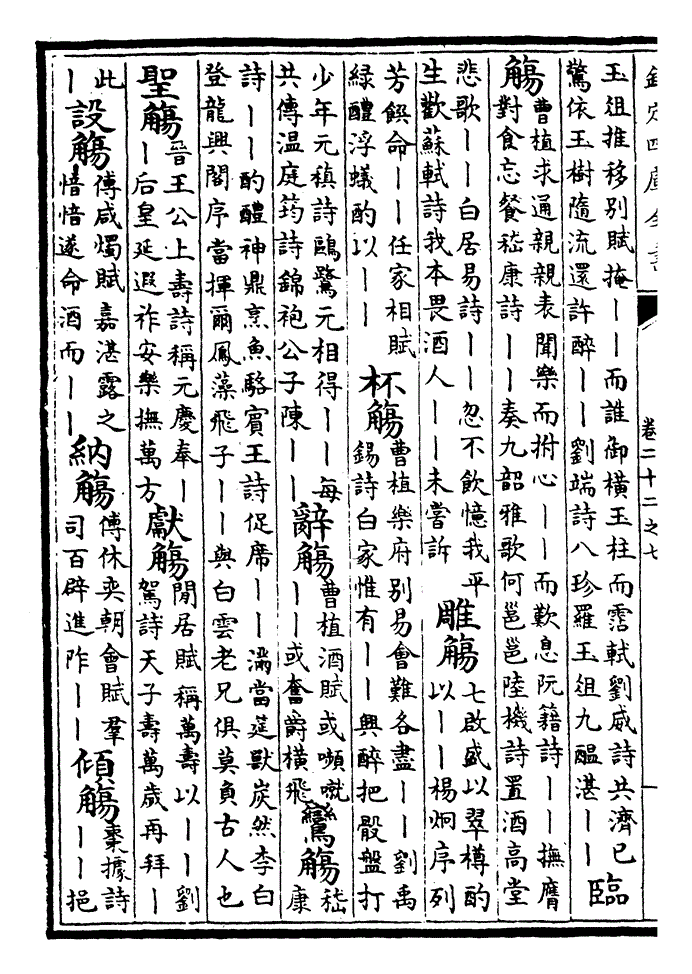 欽定四庫全書
卷二十二之七
玉俎推移别賦掩｜｜而誰御横玉柱而霑軾劉威詩共濟已
驚依玉樹隨流還許醉｜｜劉端詩八珍羅玉俎九醖湛｜｜
臨
觴
曹植求通親親表聞樂而拊心｜｜而歎息阮籍詩｜｜撫膺
對食忘餐嵇康詩｜｜奏九韶雅歌何邕邕陸機詩置酒高堂
悲歌｜｜白居易詩｜｜忽不飲憶我平
生歡蘇軾詩我本畏酒人｜｜未嘗訴
雕觴
七啟盛以翠樽酌
以｜｜楊炯序列
芳饌命｜｜任家相賦
緑醴浮蟻酌以｜｜
杯觴
曹植樂府别易會難各盡｜｜劉禹
錫詩白家惟有｜｜興醉把骰盤打
少年元稹詩鷗鷺元相得｜｜每
共傳温庭筠詩錦袍公子陳｜｜
辭觴
曹植酒賦或嚬噈
｜｜或奮爵横飛
鸞觴
嵇
康
詩｜｜酌醴神鼎烹魚駱賓王詩促席｜｜滿當筵獸炭然李白
登龍興閣序當揮爾鳳藻飛子｜｜與白雲老兄俱莫負古人也
聖觴
晉王公上壽詩稱元慶奉｜
｜后皇延遐祚安樂撫萬方
獻觴
閒居賦稱萬壽以｜｜劉
駕詩天子壽萬歲再拜｜
此
｜
設觴
傅咸燭賦嘉湛露之
愔愔遂命酒而｜｜
納觴
傅休奕朝會賦羣
司百辟進阼｜｜
傾觴
棗據詩
｜｜挹